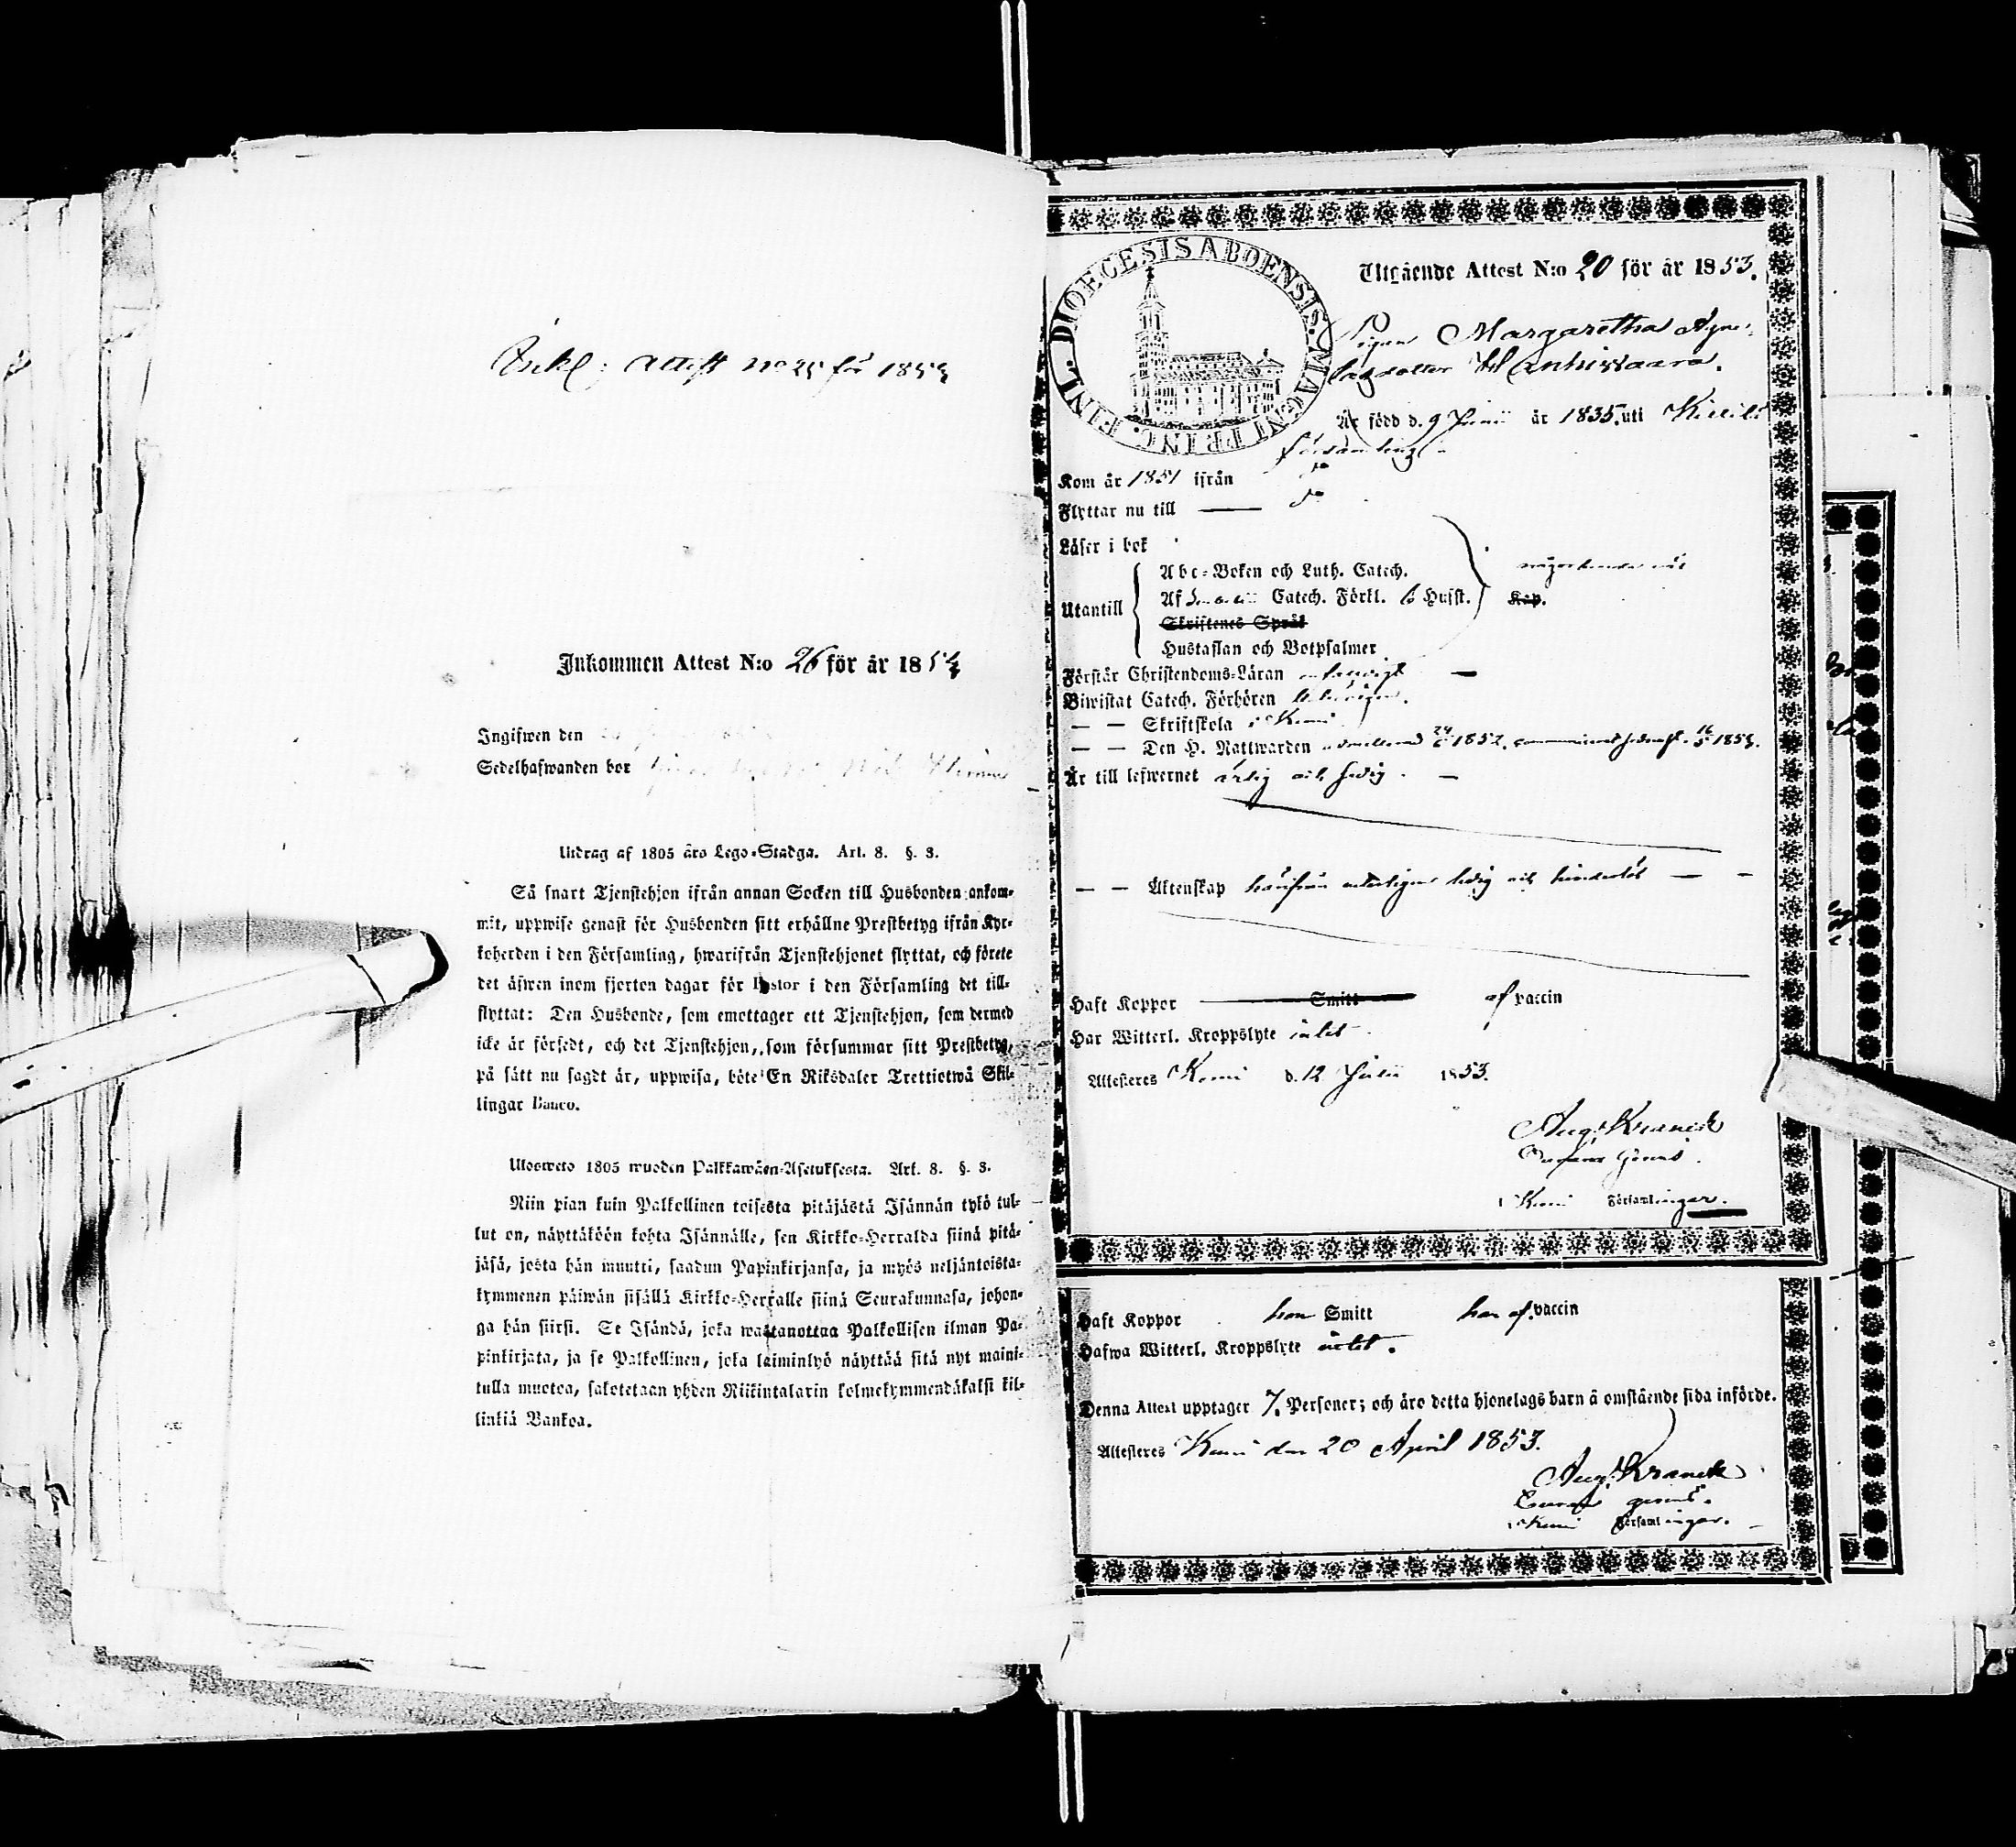 Inkl: Attest no 25 för 1853
Inkommen Attest N:o 26 för år 1853
Ingifwen den
Sedelhafwanden bor
Utdrag af 1805 års Lego-Stadga. Art. 8. §. 3.
Så snart Tjenstehjon ifrån annan Socken till Husbonden ankom-
mit, uppwise genast för Husbonden sitt erhållne Prestbetyg ifrån Kyr-
koherden i den Församling, hwarifrån Tjenstehjonet flyttat, och förete
det äfwen inom fjorton dagar för Pastor i den Församling det till-
flyttat: Den Husbonde, som emottager ett Tjenstehjon, som dermed
icke är försedt, och det Tjenstehjon, som försummar sitt Prestbetyg,
på sätt nu sagdt är, uppwisa, böte En Riksdaler Trettiotwå Skil-
lingar Banco.
Ulosweto 1805 wuoden Palkkawäen-Asetuksesta. Art. 8. §. 3.
Niin pian kuin Palkollinen toisesta pitäjästä Isännän tykö tul-
lut on, näyttäköön kohta Isännälle, sen Kirkko-Herralda siinä pitä-
jäsä, josta hän muutti, saadun Papinkirjansa, ja myös neljäntoista-
kymmenen päiwän sisällä Kirkko-Herralle siinä Seurakunnasa, johon-
ga hän siirsi. Se Isändä, joka wastanottaa Palkollisen ilman Pa-
pinkirjata, ja se Palkollinen, joka laiminlyö näyttää sitä nyt maini-
tulla muotoa, sakotetaan yhden Riikintalarin kolmekymmendäkaksi kil-
linkiä Bankoa.
DIOECESIS ABOENSIS. MAGNI PRINC. FINL.
Utgående Attest N:o 20 för år 1853.
Pigan Margaretha
Är född d. 9 Junii år 1835. uti
församling
Kom år 1851 ifrån
Flyttar nu till
Läser i bok
Utantill
Abc-Boken och Luth. Catech.
Af Catech. Förkl. Husst. Kap.
Skriftenes Språk
Hustaflan och Botpsalmer
Förstår Christendoms-Läran
Biwistat Catech. Förhören
— — Skriftskola i Kemi
— — Den H. Nattwarden 1852, 1853.
Är till lefwernet ärlig och sedig.
— — Äktenskap härifrån ledig och hinderlös — —
Haft Koppor Smitt af vaccin
Har Witterl. Kroppslyte intet
Attesteres Kemi d. 12 Julii 1853.
Aug. Kranck
i Kemi Församlingar.
Haft Koppor Smitt af vaccin
Hafwa Witterl. Kroppslyte intet.
Denna Attest upptager 7. Personer; och äro detta hjonelags barn å omstående sida införde.
Attesteres Kemi den 20 April 1853.
Aug. Kranck
i Kemi Församlingar.